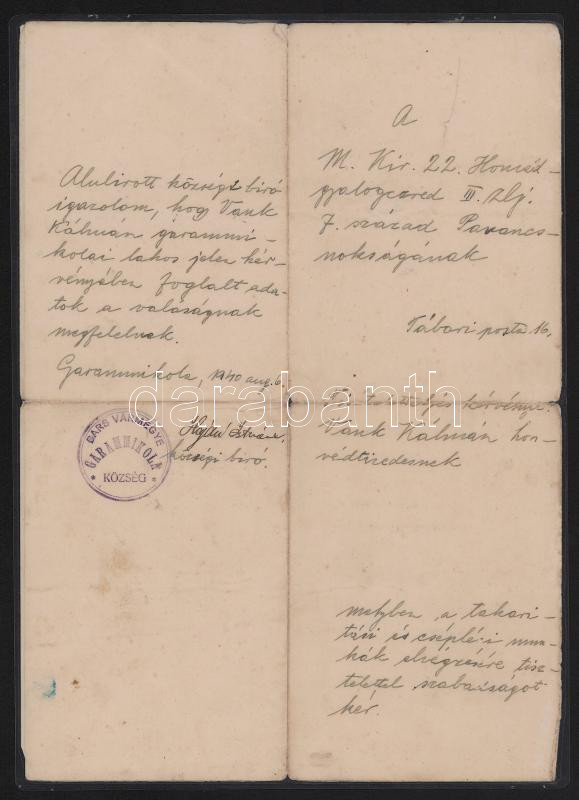 Alulirott községi biró
igazolom, hogy Vank
Kálmán garammi-
kolai lakos jelen kér-
vényében foglalt ada-
tok a valóságnak
megfelelnek.
Garammikola, 1940 aug. 6.
Hajdu István,
községi biró.
BARS VÁRMEGYE
* GARAMMIKOLA *
KÖZSÉG
A
M. Kir. 22. Honvéd-
gyalogezred III. zlj.
7. század Parancs-
nokságának
Tábori posta 16.
kérvénye
Vank Kálmán hon-
védtizedesnek
melyben a takari-
tási és cséplési mun-
kák elvégzésére tisz-
telettel szabadságot
kér.
darabanth